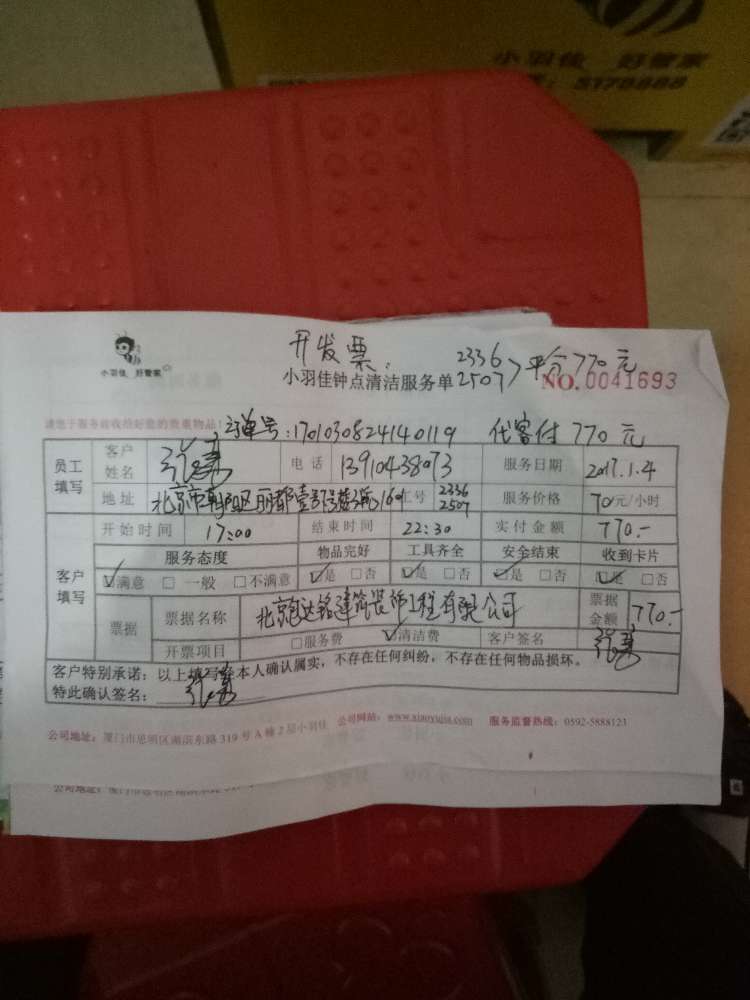 小羽佳 好管家
5178888
开发票:
2336
2507 > 平分770元
小羽佳 好管家
小羽佳钟点清洁服务单
NO.0041693
订单号:170103082414 0119 代客付770元
员工填写 客户姓名 电话 13910438073 服务日期 2017.1.4
地址 北京市朝阳区丽都壹号 1601 工号 2336 2507 服务价格 70元/小时
开始时间 17:00 结束时间 22:30 实付金额 770.-
客户填写 服务态度 物品完好 工具齐全 安全结束 收到卡片
☑满意 □一般 □不满意 ☑是 □否 ☑是 □否 ☑是 □否 ☑是 □否
票据 票据名称 北京 达铭建筑装饰工程有限公司 票据金额 770.-
开票项目 □服务费 ☑清洁费 客户签名
客户特别承诺:以上填写经本人确认属实,不存在任何纠纷,不存在任何物品损坏。
特此确认签名:
公司地址:厦门市思明区湖滨东路319号A幢2层小羽佳 公司网站:www.xiaoyujia.com 服务监督热线:0592-5888123